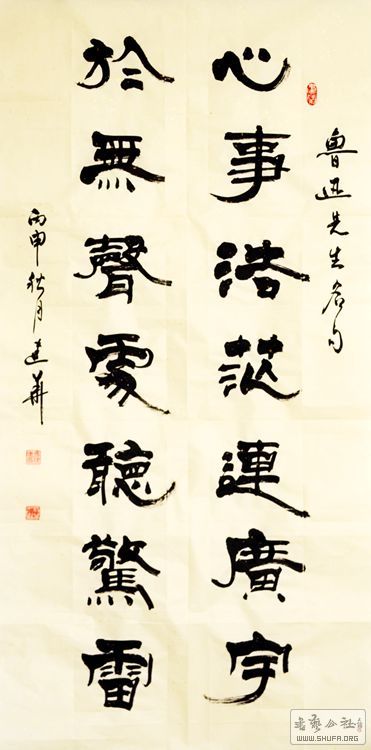 魯迅先生名句
心事浩茫連廣宇
於無聲處聽驚雷
丙申秋月建華
書藝公社
WWW.SHUFA.ORG